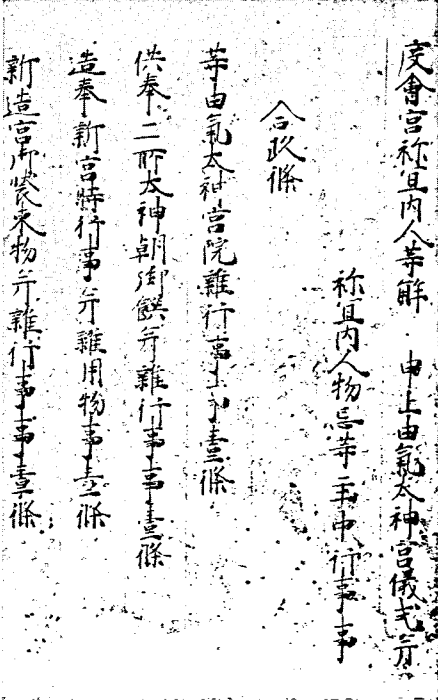 度會宮祢宜内人等解 申上由氣太神宮儀式并
祢宜内人物忌等年中行事事
合玖條
等由氣太神宮院雜行事上事壹條
供奉二所太神朝御饌并雜行事事壹條
造奉新宮時行事并雜用物事壹條
新造宮御裝束物并雜行事事壹條